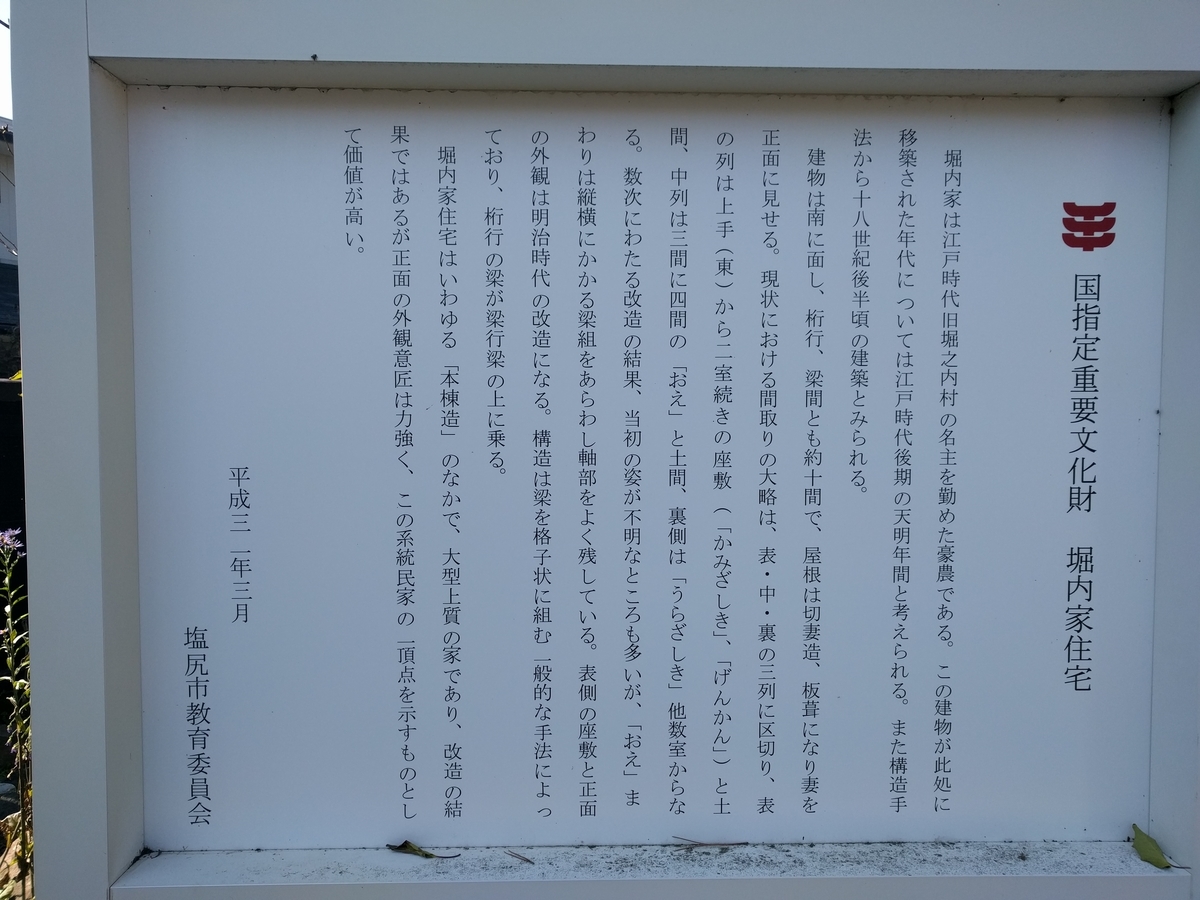 国指定重要文化財　堀内家住宅
　堀内家は江戸時代旧堀之内村の名主を勤めた豪農である。この建物が此処に
移築された年代については江戸時代後期の天明年間と考えられる。また構造手
法から十八世紀後半頃の建築とみられる。
　建物は南に面し、桁行、梁間とも約十間で、屋根は切妻造、板葺になり妻を
正面に見せる。現状における間取りの大略は、表・中・裏の三列に区切り、表
の列は上手（東）から二室続きの座敷（「かみざしき」、「げんかん」）と土
間、中列は三間に四間の「おえ」と土間、裏側は「うらざしき」他数室からな
る。数次にわたる改造の結果、当初の姿が不明なところも多いが、「おえ」ま
わりは縦横にかかる梁組をあらわし軸部をよく残している。表側の座敷と正面
の外観は明治時代の改造になる。構造は梁を格子状に組む一般的な手法によっ
ており、桁行の梁が梁行梁の上に乗る。
　堀内家住宅はいわゆる「本棟造」のなかで、大型上質の家であり、改造の結
果ではあるが正面の外観意匠は力強く、この系統民家の一頂点を示すものとし
て価値が高い。
平成二一年三月
塩尻市教育委員会